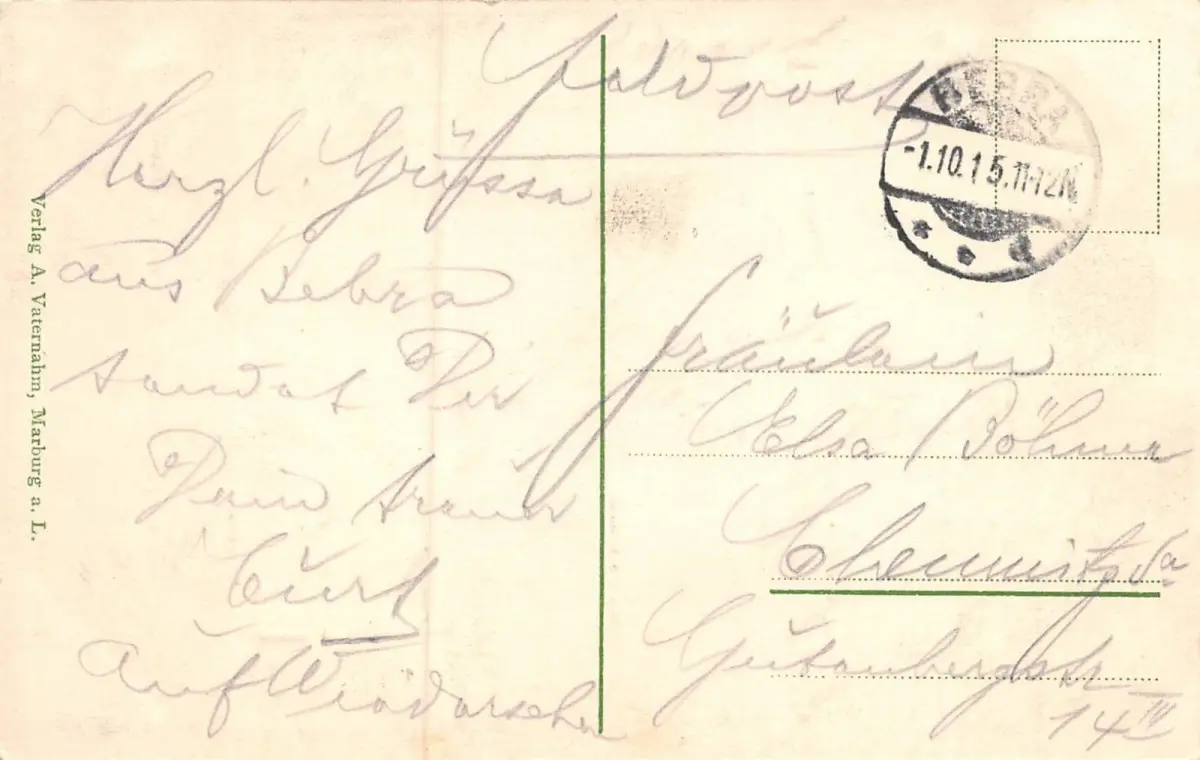 Feldpost
Herzl. Grüsse
aus Bebra
sendet Dir
Dein treuer
Curt
Auf Wiedersehen
BEBRA
-1.10.15.11-12N.
* * d
Fräulein
Elsa Böhmer
Chemnitz Sa
Gutenbergstr
14 III
Verlag A. Vaternahm, Marburg a. L.